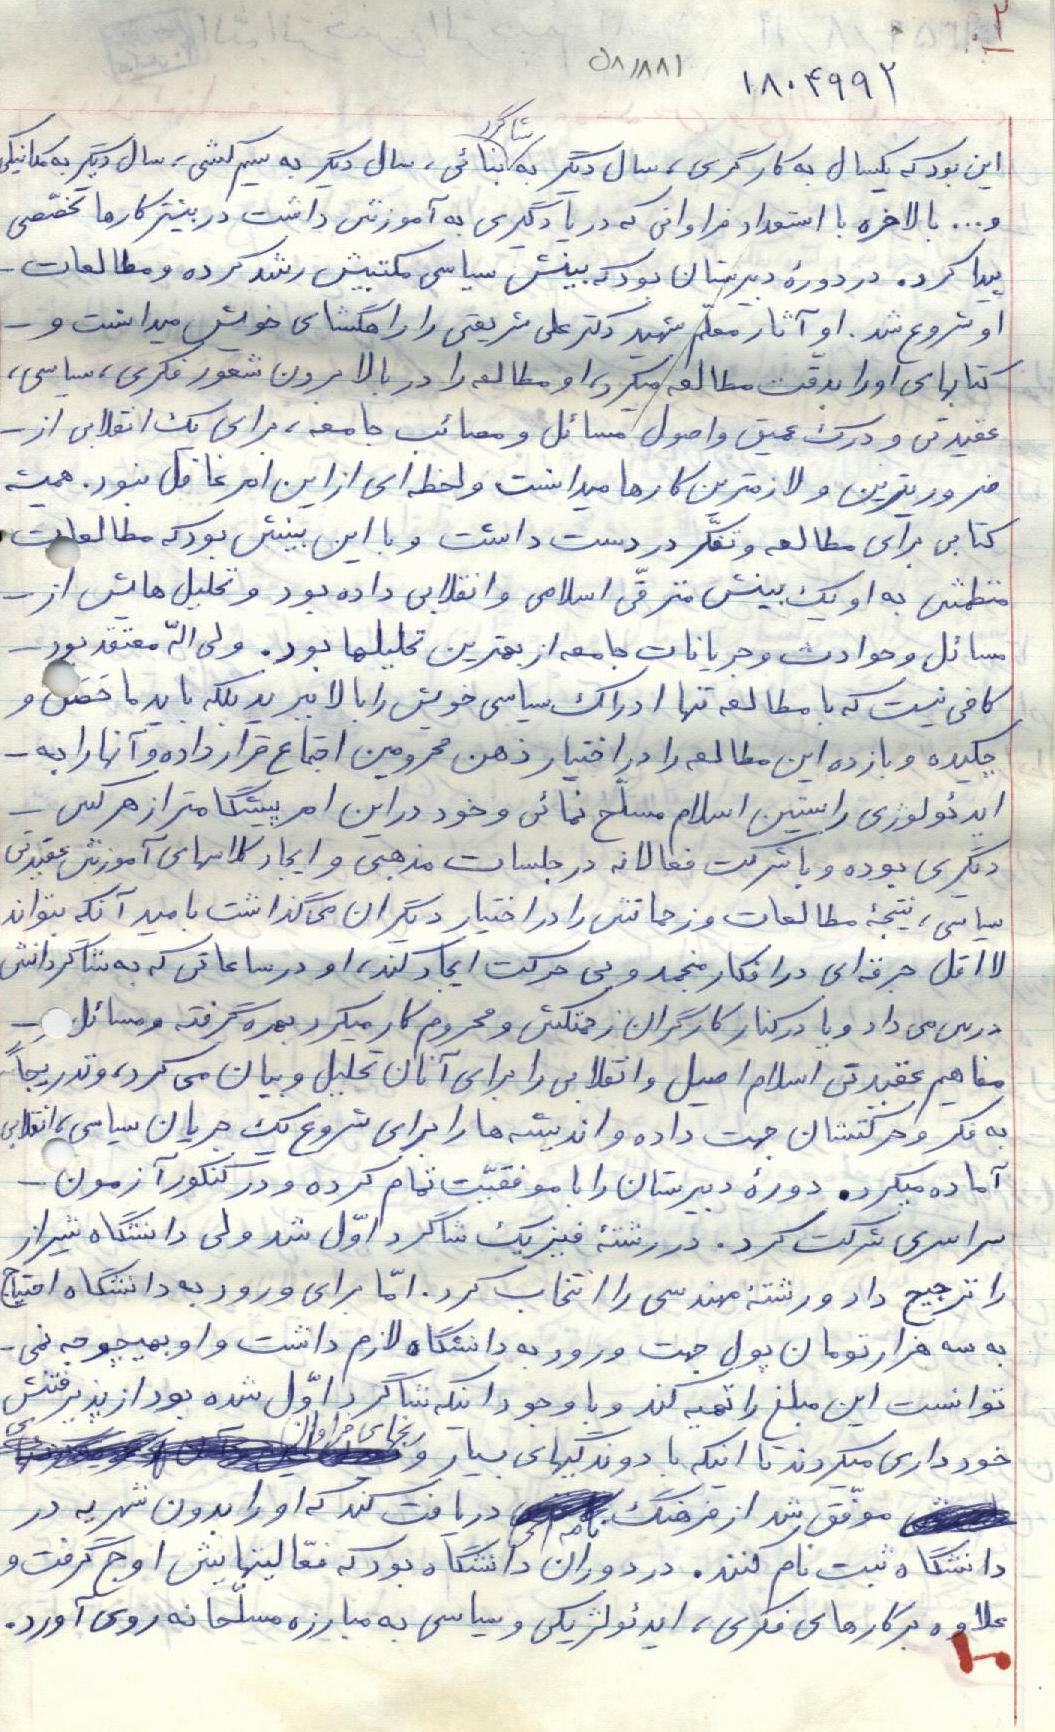 ۲
۵۸/۸۸۱
۱۸۰۴۹۹۲
شاگرد
این بود که یکسال به کارگری، سال دیگر به بنائی، سال دیگر به سیم کشی، سال دیگر به مکانیکی
و... بالاخره با استعداد فراوانی که در یادگیری به آموزش داشت در بیشتر کارها تخصّصی
پیدا کرد. در دورهٔ دبیرستان بود که بینش سیاسی مکتبیش رشد کرده و مطالعات ـ
او شروع شد. او آثار معلّم شهید دکتر علی شریعتی را راهگشای خویش میدانست و ـ
کتابهای او را بدقت مطالعه میکرد، او مطالعه را در بالا بردن شعور فکری، سیاسی،
عقیدتی و درک عمیق و اصولی مسائل و مصائب جامعه، برای یک انقلابی از ـ
ضروریترین و لازمترین کارها میدانست و لحظه ای از این امر غافل نبود. همیشه
کتابی برای مطالعه و تفکّر در دست داشت و با این بینش بود که مطالعات
منظمش به او یک بینش مترقّی اسلامی و انقلابی داده بود و تحلیل هایش از ـ
مسائل و حوادث و جریانات جامعه از بهترین تحلیلها بود. ولی الّه معتقد بود ـ
کافی نیست که با مطالعه تنها ادراک سیاسی خویش را بالا ببرید بلکه باید ماحصل و
چکیده و بازده این مطالعه را در اختیار ذهن محرومین اجتماع قرار داده و آنها را به ـ
ایدئولوژی راستین اسلام مسلّح نمائی و خود در این امر پیشگامتر از هر کس ـ
دیگری بوده و با شرکت فعالانه در جلسات مذهبی و ایجاد کلاسهای آموزش عقیدتی
سیاسی، نتیجهٔ مطالعات و زحماتش را در اختیار دیگران می گذاشت بامید آنکه بتواند
لااقل جرقه ای در افکار منجمد و بی حرکت ایجاد کند، او در ساعاتی که به شاگردانش
درس می داد و یا در کنار کارگران زحمتکش و محروم کار میکرد بهره گرفته و مسائل و ـ
مفاهیم عقیدتی اسلام اصیل و انقلابی را برای آنان تحلیل و بیان می کرد، و تدریجاً
به فکر و حرکتشان جهت داده و اندیشه ها را برای شروع یک جریان سیاسی، انقلابی
آماده میکرد. دورهٔ دبیرستان را با موفقیّت تمام کرده و در کنکور آزمون ـ
سراسری شرکت کرد. در رشتهٔ فیزیک شاگرد اوّل شد ولی دانشگاه شیراز
را ترجیح داد و رشتهٔ مهندسی را انتخاب کرد. امّا برای ورود به دانشگاه احتیاج
به سه هزار تومان پول جهت ورود به دانشگاه لازم داشت و او بهیچوجه نمی ـ
توانست این مبلغ را تهیه کند و با وجود اینکه شاگرد اوّل شده بود از پذیرفتنش
خودداری میکردند تا اینکه با دوندگیهای بسیار و رنجهای فراوان
موفّق شد از فرهنگ نامه ای دریافت کند که او را بدون شهریه در
دانشگاه ثبت نام کنند. در دوران دانشگاه بود که فعّالیتهایش اوج گرفت و
علاوه بر کارهای فکری، ایدئولژیکی و سیاسی به مبارزه مسلّحانه روی آورد.